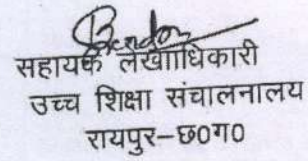 सहायक लेखाधिकारी
उच्च शिक्षा संचालनालय
रायपुर–छ0ग0